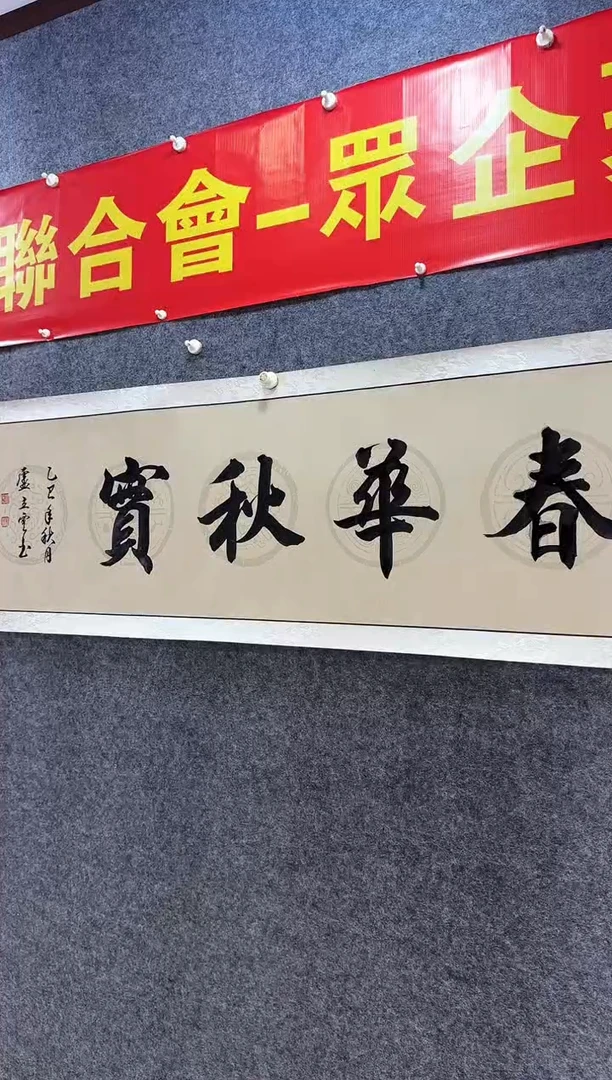 聯合會-眾企
春華秋實
乙巳年秋月
盧立雲书